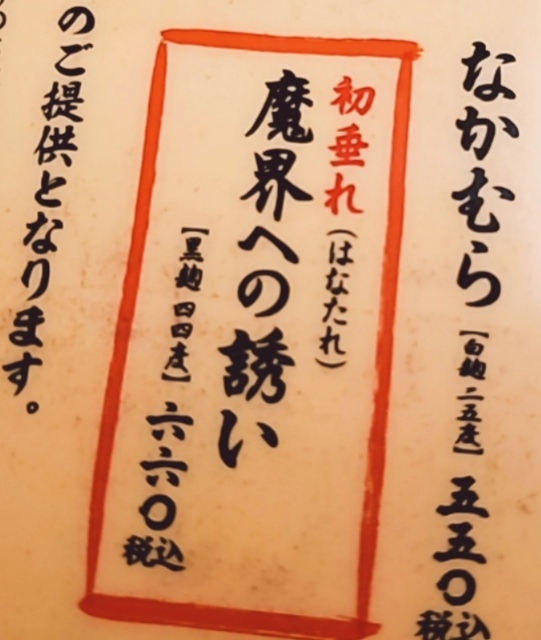 なかむら【白麹 二五度】五五〇税込
初垂れ(はなたれ)
魔界への誘い
【黒麹 四四度】六六〇税込
のご提供となります。